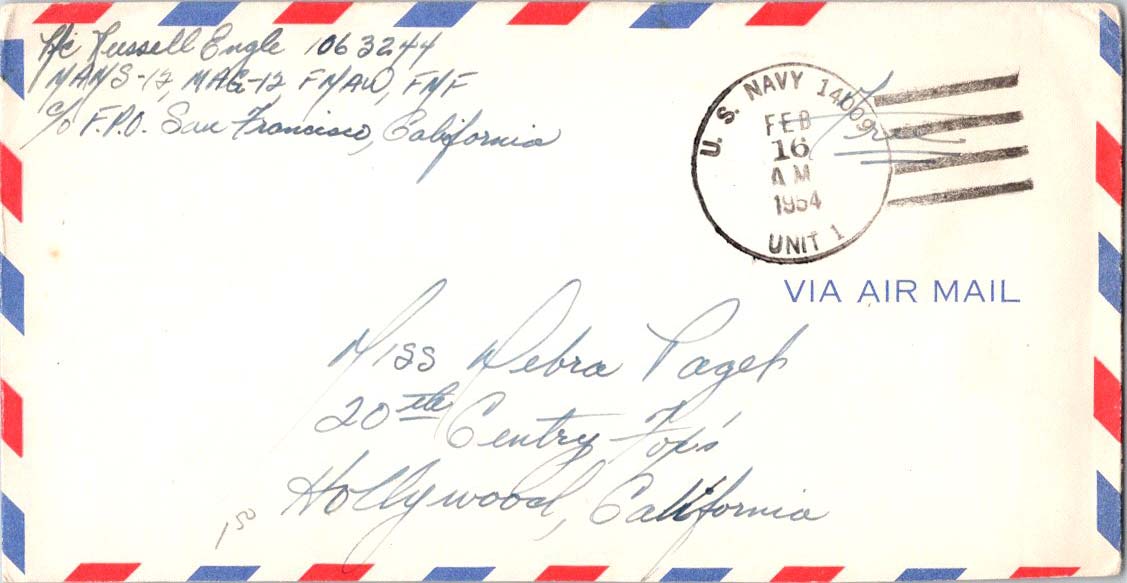 Pfc Russell Engle 1063244
MAMS-12, MAG-12 FMAW, FMF
c/o F.P.O. San Francisco, California
U.S. NAVY 14009
FEB
16
AM
1954
UNIT 1
Free
VIA AIR MAIL
Miss Debra Paget
20th Centry Fox's
Hollywood, California
150